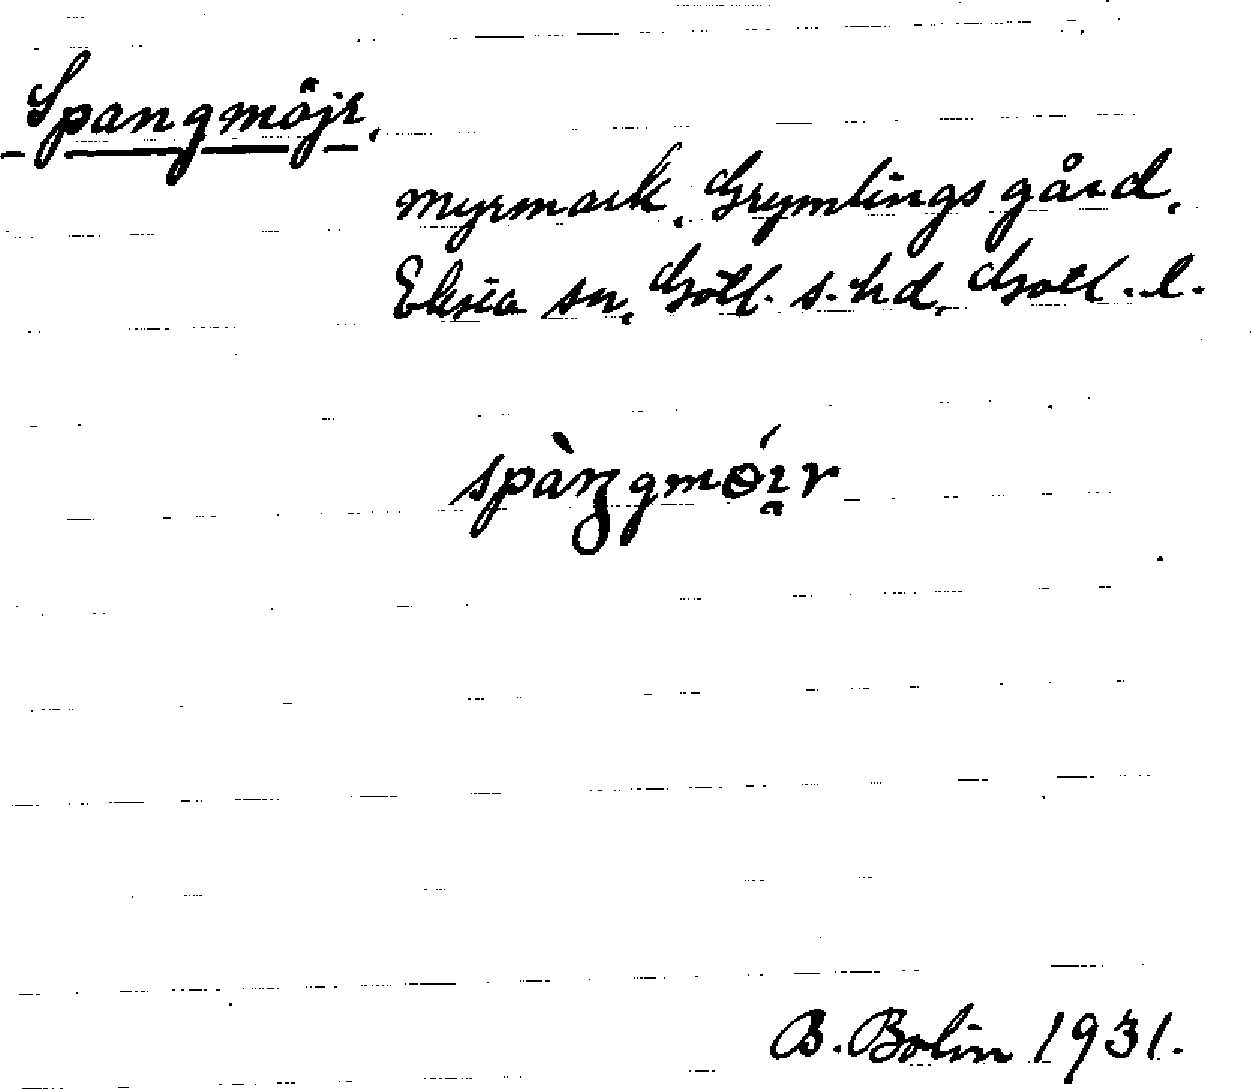 Spangmöjr.
myrmark, Grymlings gård,
Eksta sn, Gotl. s. hd, Gotl. l.
spàŋgmɵ́ɪ̯r
B. Bolin 1931.